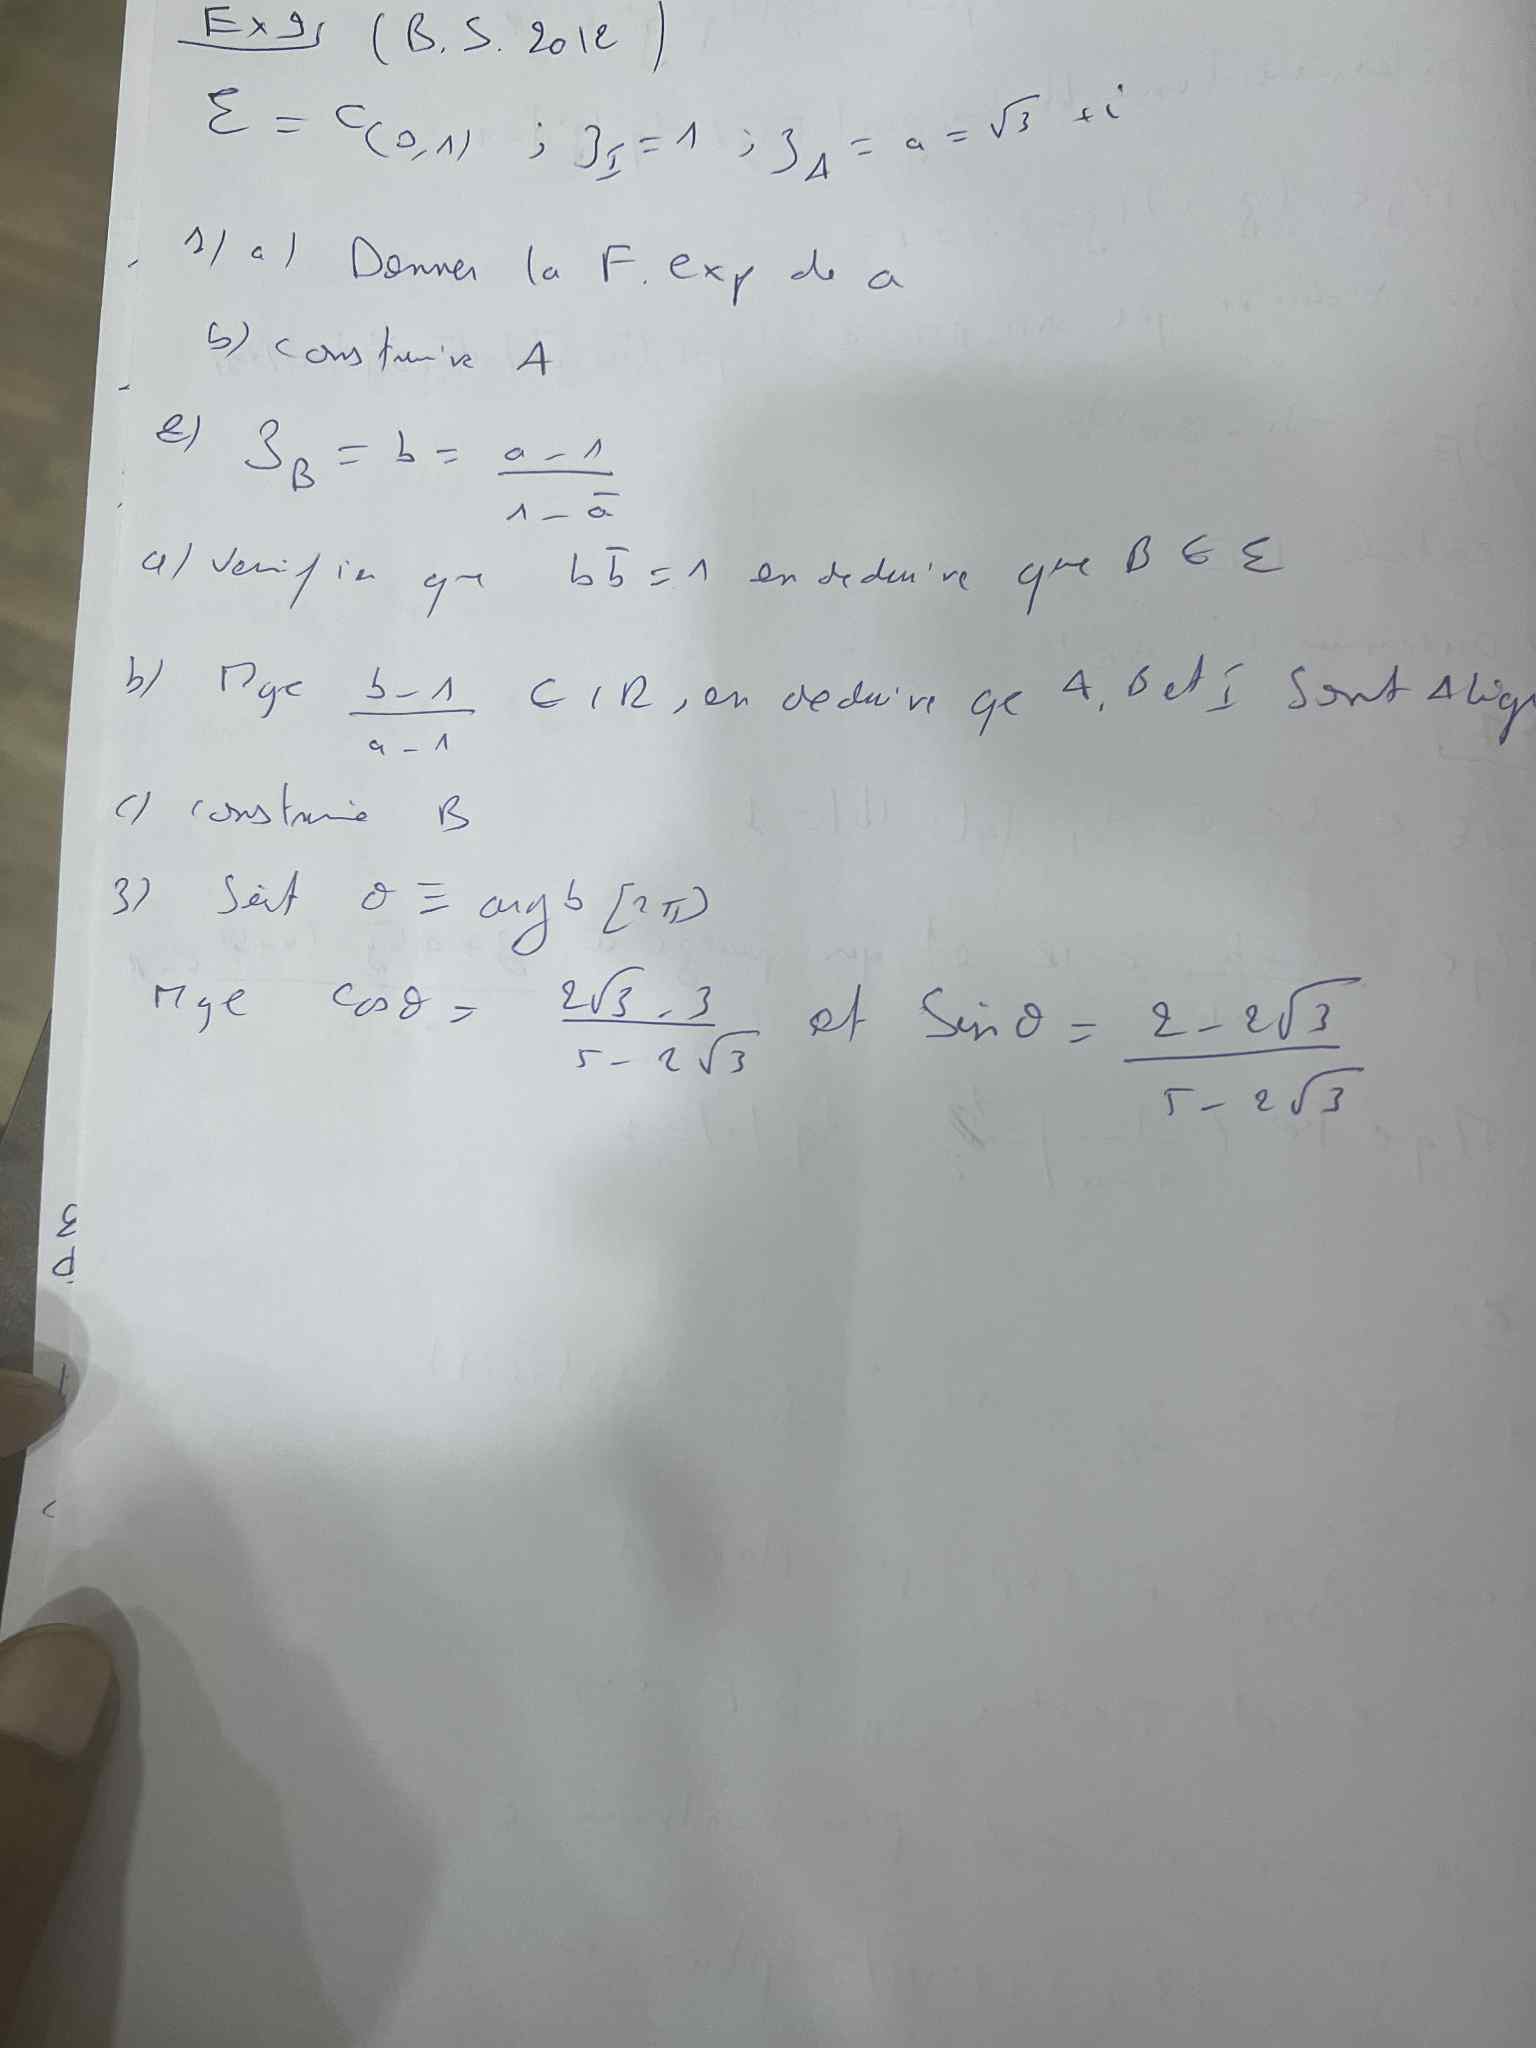 Ex 9, (B.S. 2012)
ξ = C(0,1) ; z_I = 1 ; z_A = a = √3 + i
1/ a) Donner la F. exp de a
b) construire A
2) z_B = b = (a - 1)/(1 - a̅)
a) Verifier que b b̅ = 1 en deduire que B ∈ ξ
b) Mqe (b - 1)/(a - 1) ∈ IR, en deduire qe A, B et I Sont Alig
c) construire B
3) Soit θ ≡ arg b [2π]
Mqe cosθ = (2√3 - 3)/(5 - 2√3) et Sinθ = (2 - 2√3)/(5 - 2√3)